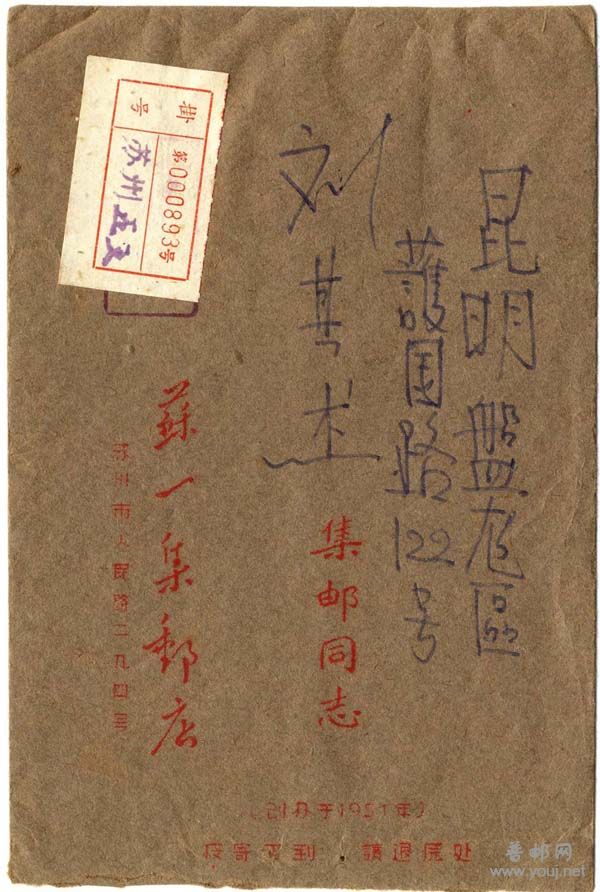 昆明盤龙區
護国路122号
刘其杰
集邮同志
蘇一集郵店
苏州市人民路二九四号
(创办于1951年)
投寄不到 請退原处
掛号
第000893号
苏州
普邮网
www.youj.net